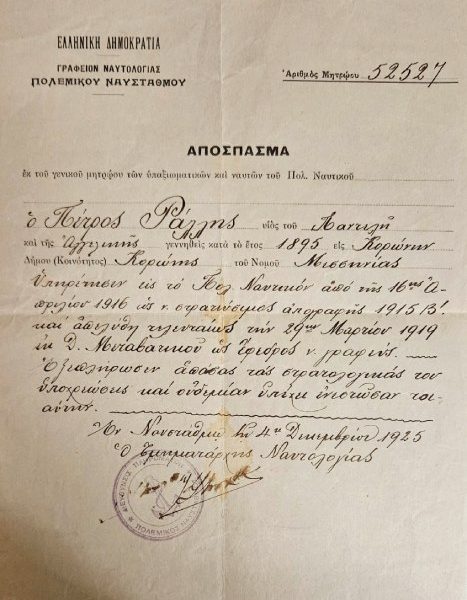 ΕΛΛΗΝΙΚΗ ΔΗΜΟΚΡΑΤΙΑ
ΓΡΑΦΕΙΟΝ ΝΑΥΤΟΛΟΓΙΑΣ
ΠΟΛΕΜΙΚΟΥ ΝΑΥΣΤΑΘΜΟΥ
Ἀριθμὸς Μητρῴου 52527
ΑΠΟΣΠΑΣΜΑ
ἐκ τοῦ γενικοῦ μητρῴου τῶν ὑπαξιωματικῶν καὶ ναυτῶν τοῦ Πολ. Ναυτικοῦ
ὁ Πέτρος Ράλλης υἱὸς τοῦ Παντελῆ
καὶ τῆς Ἀγγελικῆς γεννηθεὶς κατὰ τὸ ἔτος 1895 εἰς Κορώνην
Δήμου (Κοινότητος) Κορώνης τοῦ Νομοῦ Μεσσηνίας
Ὑπηρέτησεν εἰς τὸ Πολ Ναυτικὸν ἀπὸ τῆς 16ης Ἀ-
πριλίου 1916 ὡς ν. στρατεύσιμος ἀπογραφῆς 1915 Β!
καὶ ἀπελύθη τελευταίως τὴν 29ην Μαρτίου 1919
ἐκ Δ. Μεταβατικοῦ ὡς ἔφεδρος ν. γραφεύς.
Ἐξεπλήρωσεν ἁπάσας τὰς στρατολογικάς του
ὑποχρεώσεις καὶ οὐδεμίαν ὑπέχει ἐνεστῶσαν τοι-
αύτην.
Ἐν Ναυστάθμῳ τῇ 4ῃ Δεκεμβρίου 1925
Ὁ Τμηματάρχης Ναυτολογίας
ΠΟΛΕΜΙΚΟΣ